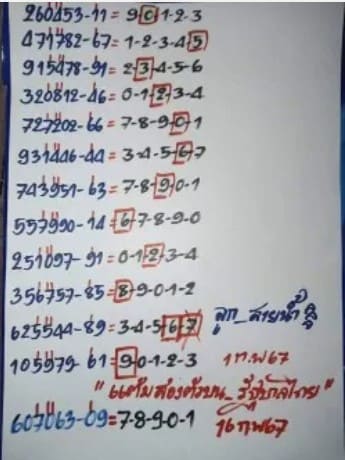 260453-11 = 9-0-1-2-3
471782-67 = 1-2-3-4-5
915478-91 = 2-3-4-5-6
320812-46 = 0-1-2-3-4
727202-66 = 7-8-9-0-1
931446-44 = 3-4-5-6-7
743951-63 = 7-8-9-0-1
557990-14 = 6-7-8-9-0
251097-91 = 0-1-2-3-4
356757-85 = 8-9-0-1-2
625544-89 = 3-4-5-6-7
ลูก_สายน้ำ
105979-61 = 9-0-1-2-3
1 ก.พ 67
607063-09 = 7-8-9-0-1
16 กพ 67